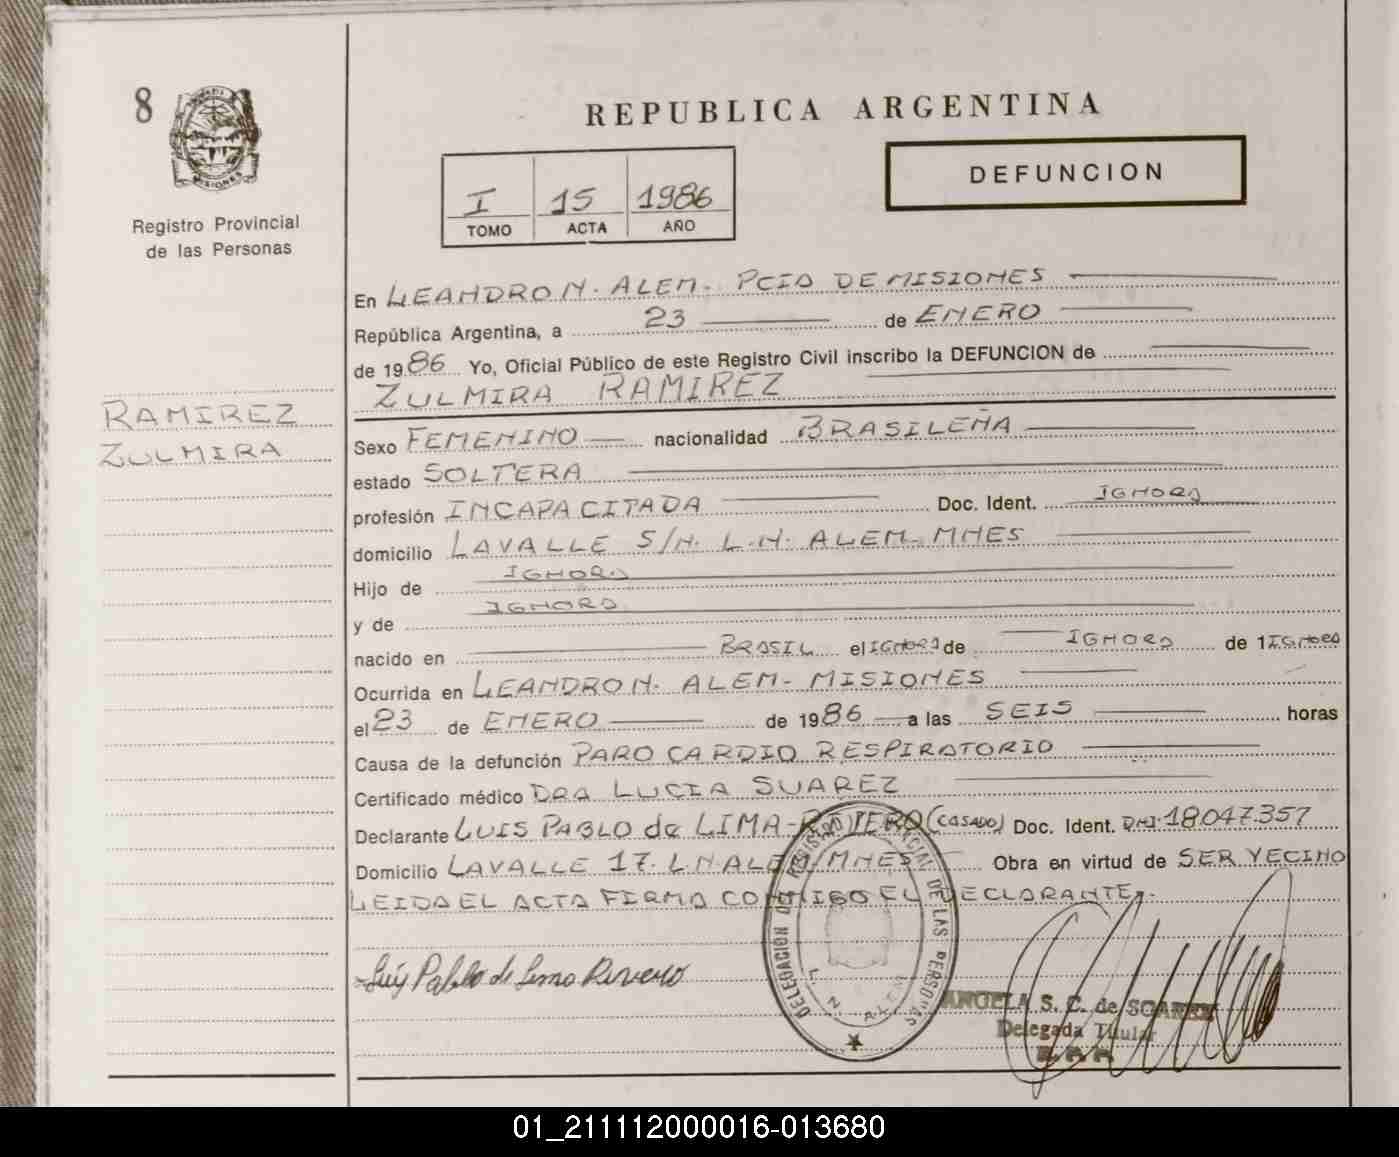 8
MISIONES
Registro Provincial
de las Personas
RAMIREZ
ZULMIRA
REPUBLICA ARGENTINA
DEFUNCION
I 15 1986
TOMO ACTA AÑO
En LEANDRO N. ALEM. PCIA DE MISIONES
República Argentina, a 23 de ENERO
de 1986 Yo, Oficial Público de este Registro Civil inscribo la DEFUNCION de
ZULMIRA RAMIREZ
Sexo FEMENINO nacionalidad BRASILEÑA
estado SOLTERA
profesión INCAPACITADA Doc. Ident. IGNORA
domicilio LAVALLE S/N. L.N. ALEM. MNES
Hijo de IGNORA
y de IGNORA
nacido en BRASIL el IGNORA de IGNORA de 1 IGNORA
Ocurrida en LEANDRO N. ALEM- MISIONES
el 23 de ENERO de 1986 a las SEIS horas
Causa de la defunción PARO CARDIO RESPIRATORIO
Certificado médico DRA LUCIA SUAREZ
Declarante LUIS PABLO de LIMA-RIVERO (CASADO) Doc. Ident. DNI. 18047357
Domicilio LAVALLE 17. L.N. ALEM/MNES Obra en virtud de SER VECINO
LEIDA EL ACTA FIRMA CONMIGO EL DECLARANTE.-
Luis Pablo de Lima Rivero
DELEGACIÓN DEL REGISTRO PROVINCIAL DE LAS PERSONAS
L. N. ALEM
ANGELA S. C. de SOAREZ
Delegada Titular
01_211112000016-013680